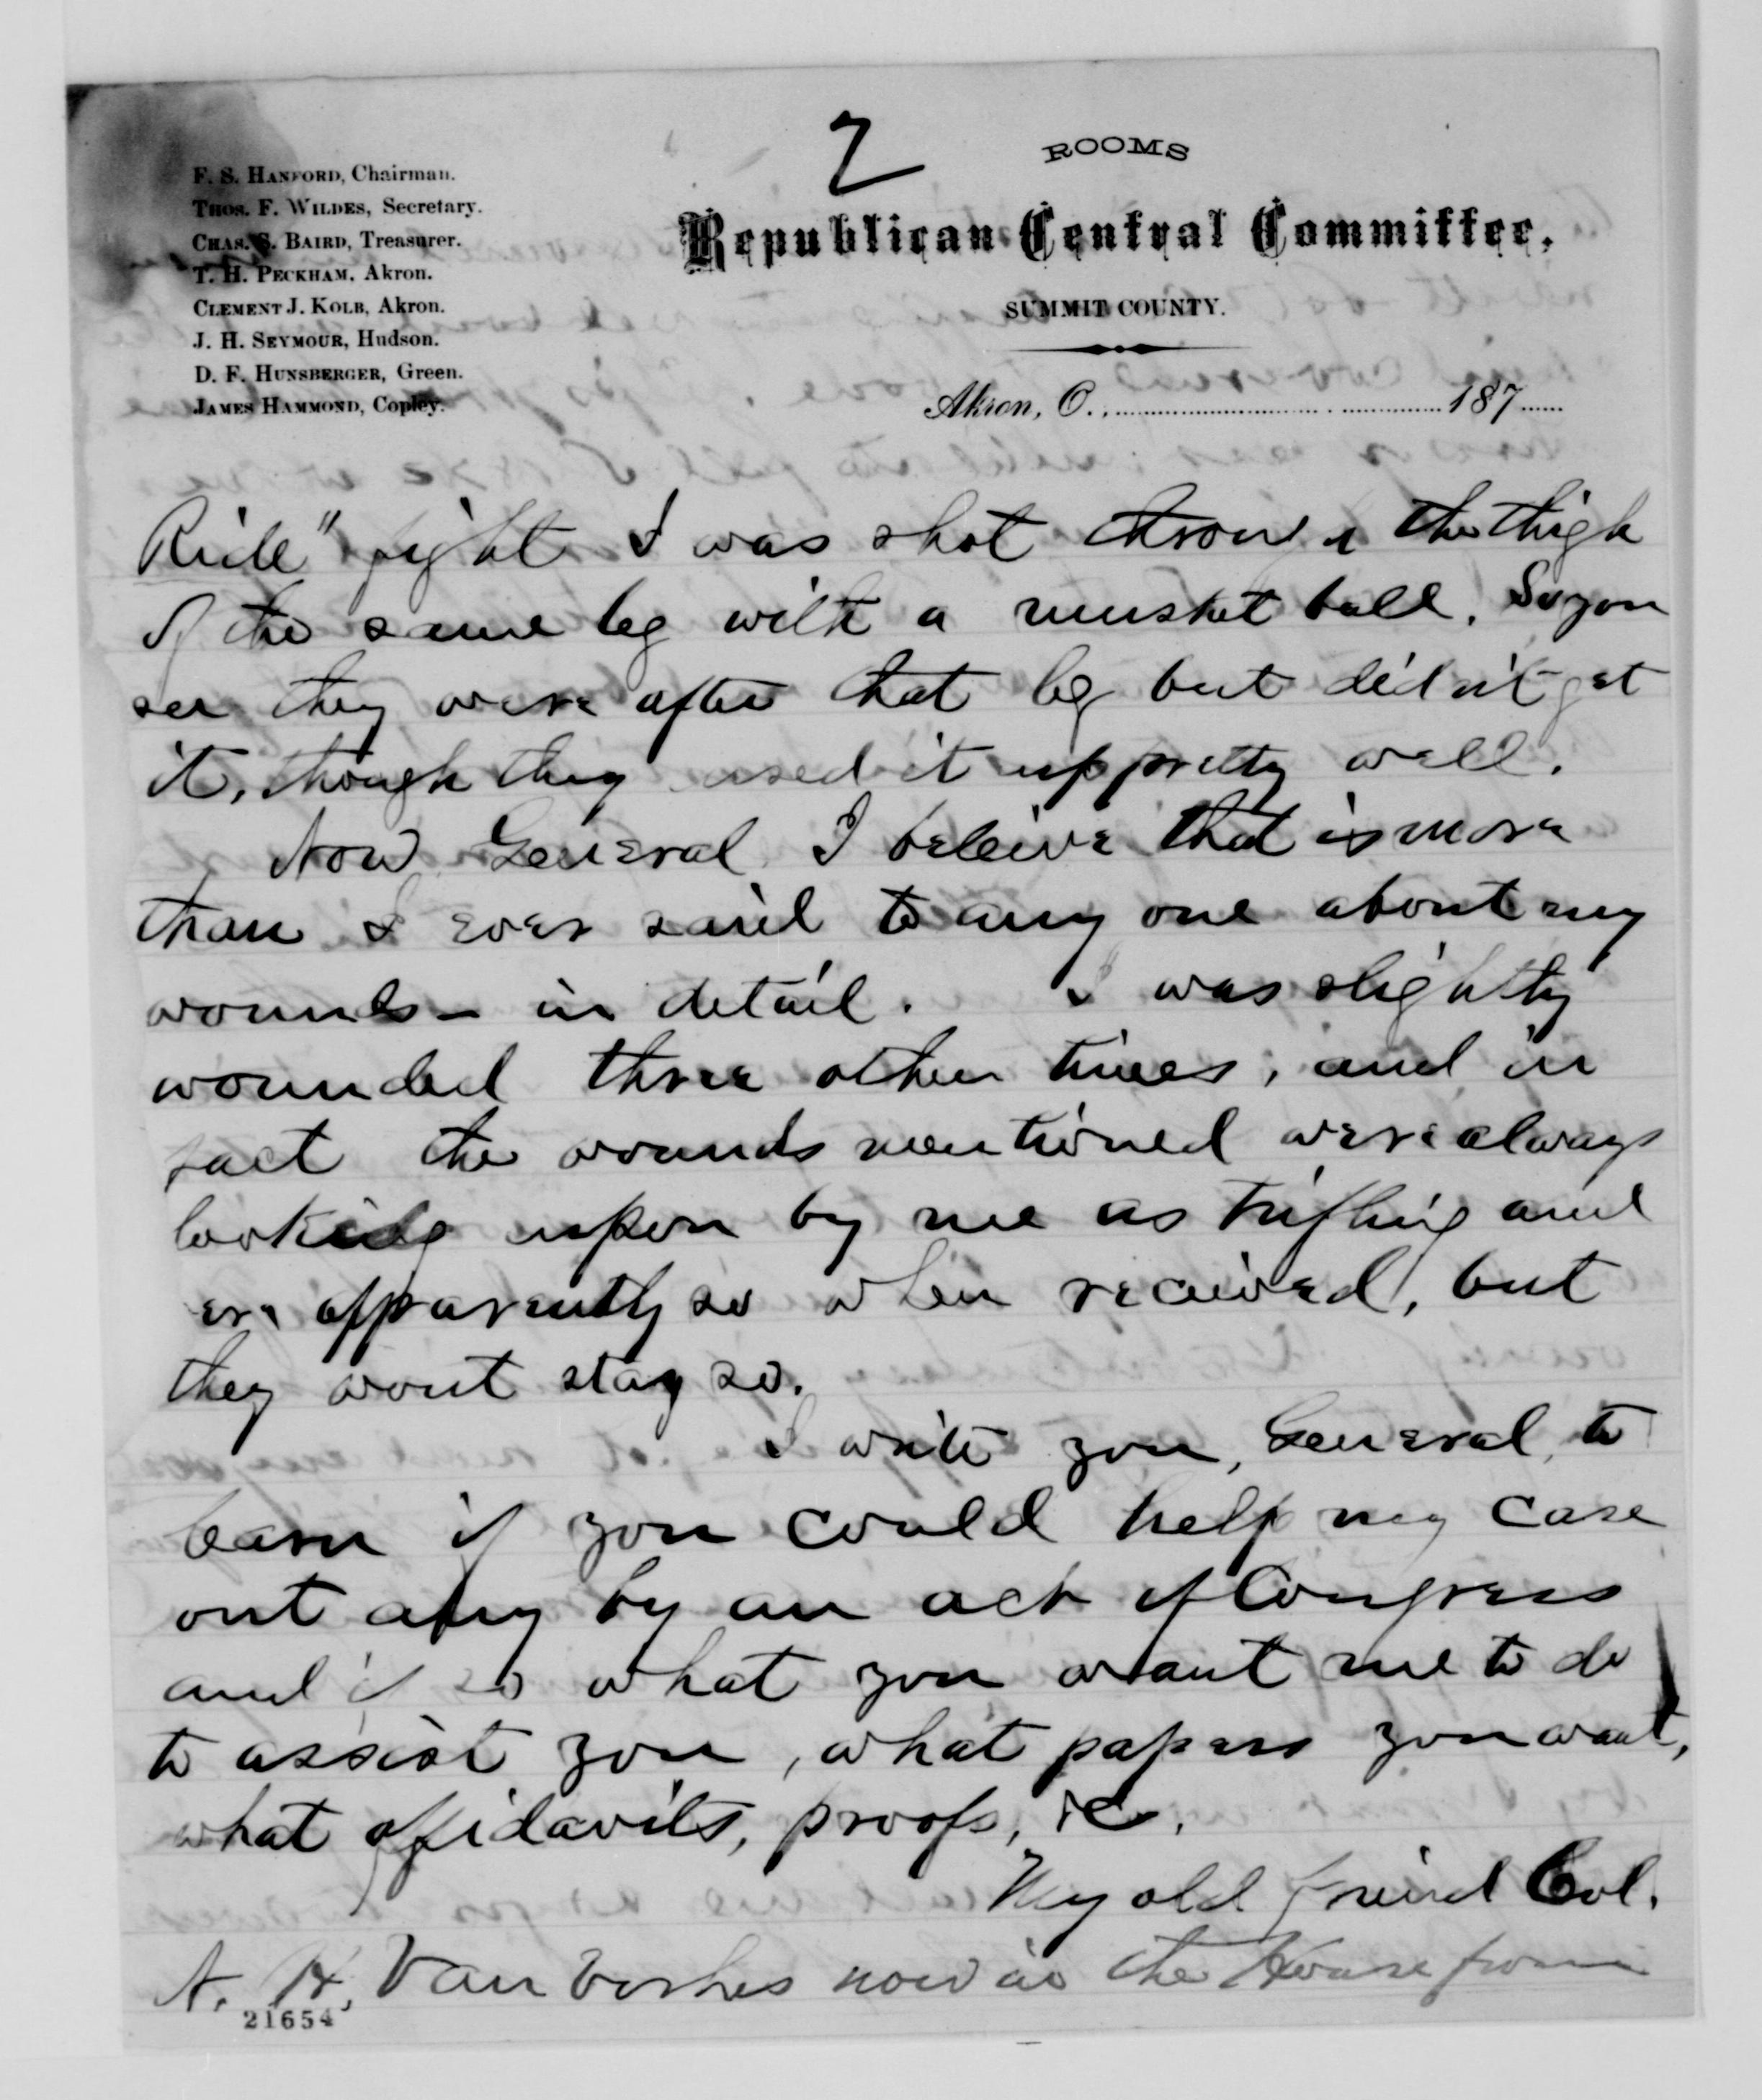 2
F. S. HANFORD, Chairman.
THOS. F. WILDES, Secretary.
CHAS. S. BAIRD, Treasurer.
T. H. PECKHAM, Akron.
CLEMENT J. KOLB, Akron.
J. H. SEYMOUR, Hudson.
D. F. HUNSBERGER, Green.
JAMES HAMMOND, Copley.
ROOMS
Republican Central Committee,
SUMMIT COUNTY.
Akron, O., 187
Ride" fight I was shot through the thigh
of the same leg with a musket ball. So you
see they were after that leg but didn't get
it, though they used it up pretty well.
Now General I beleive that is more
than I ever said to any one about my
wounds – in detail. I was slightly
wounded three other times, and in
fact the wounds mentioned were always
looked upon by me as trifling and
were apparently so when received, but
they wont stay so.
I write you, General, to
learn if you could help my case
out any by an act of Congress
and if so what you want me to do
to assist you, what papers you want,
what affidavits, proofs, &c.
My old friend Col.
A. H. Van Vorhes now in the House from
21654